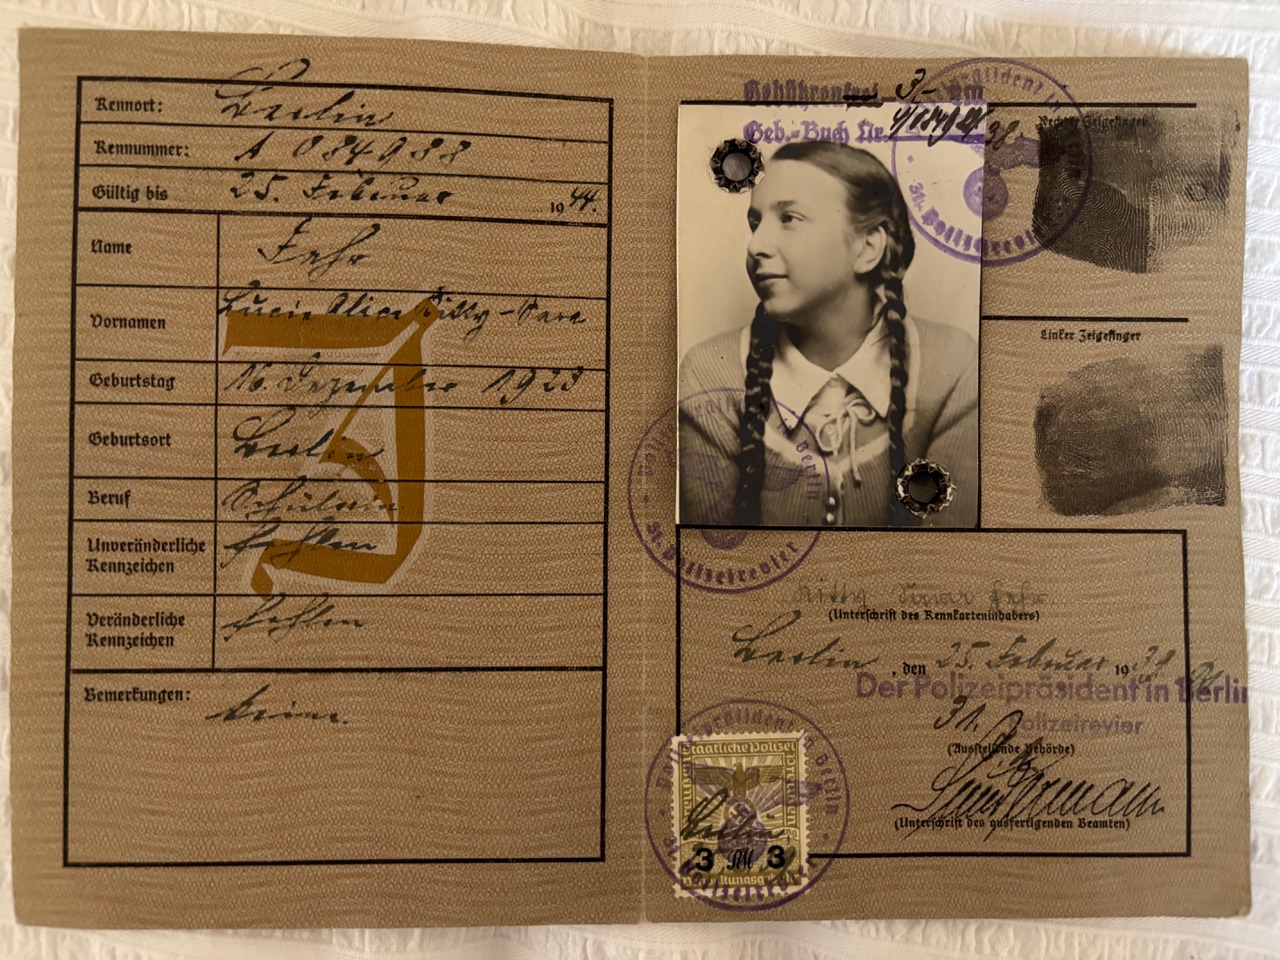 Kennort: Berlin
Kennummer: A 084988
Gültig bis 25. Februar 1944.
Name Fehr
Vornamen Lucie Alice Kitty-Sara
Geburtstag 16. Dezember 1923
Geburtsort Berlin
Beruf Schülerin
Unveränderliche Kennzeichen fehlen
Veränderliche Kennzeichen fehlen
Bemerkungen: keine.
J
Gebührenfrei 3,- RM
Geb.-Buch Nr.
Polizeipräsident in Berlin
31. Polizeirevier
Rechter Zeigefinger
Linker Zeigefinger
Polizeipräsident in Berlin
31. Polizeirevier
Kitty Sara Fehr.
(Unterschrift des Kennkarteninhabers)
Berlin, den 25. Februar 1939
Der Polizeipräsident in Berlin
31. Polizeirevier
(Ausstellende Behörde)
(Unterschrift des ausfertigenden Beamten)
Polizeipräsident in Berlin
Staatliche Polizei
Berlin
3 RM 3
Verwaltungsgebühr